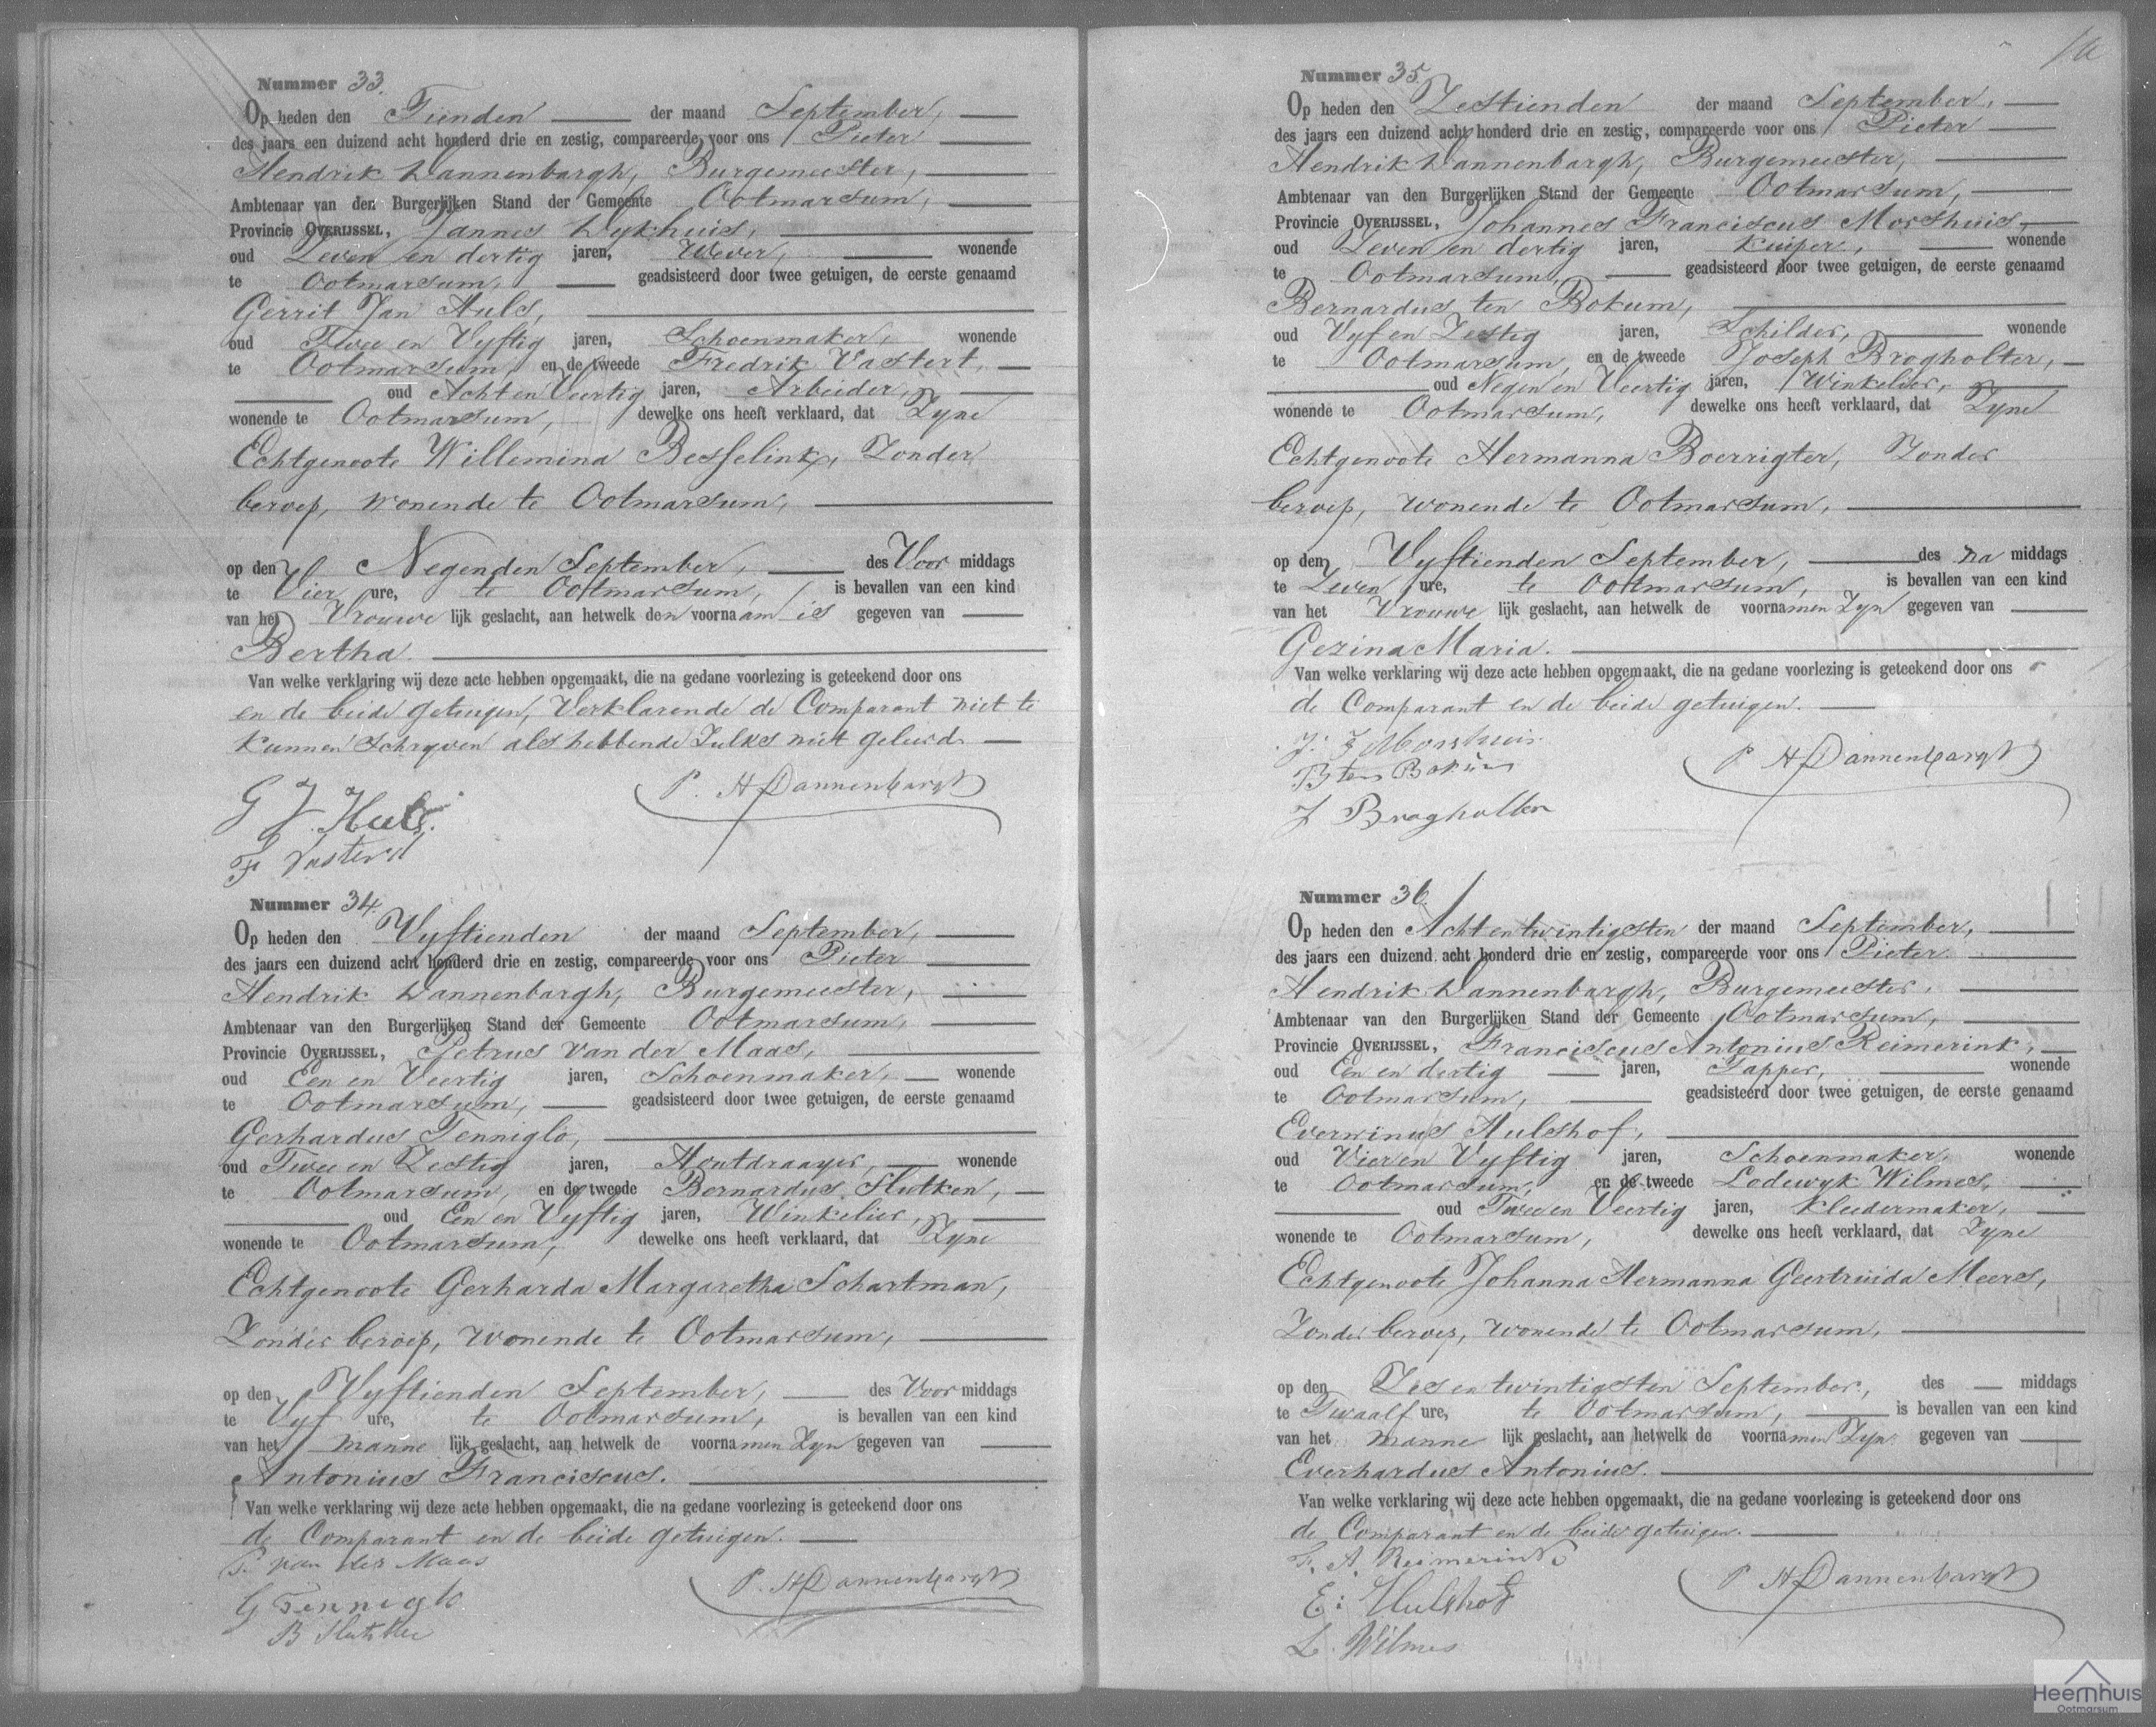 Nummer 33.
Op heden den Tienden der maand September,
des jaars een duizend acht honderd drie en zestig, compareerde voor ons Pieter
Hendrik Dannenbargh, Burgemeester,
Ambtenaar van den Burgerlijken Stand der Gemeente Ootmarsum,
Provincie OVERIJSSEL, Jannes Dykhuis,
oud Zeven en dertig jaren, Wever, wonende
te Ootmarsum, geadsisteerd door twee getuigen, de eerste genaamd
Gerrit Jan Huls,
oud Twee en Vyftig jaren, Schoenmaker, wonende
te Ootmarsum, en de tweede Fredrik Vastert,
oud Acht en Veertig jaren, Arbeider,
wonende te Ootmarsum, dewelke ons heeft verklaard, dat Zyne
Echtgenoote Willemina Besselink, Zonder
beroep, wonende te Ootmarsum,
op den Negenden September, des Voor middags
te Vier ure, te Ootmarsum, is bevallen van een kind
van het Vrouwe lijk geslacht, aan hetwelk den voornaam is gegeven van
Bertha.
Van welke verklaring wij deze acte hebben opgemaakt, die na gedane voorlezing is geteekend door ons
en de beide getuigen, Verklarende de Comparant niet te
kunnen Schryven als hebbende Zulks niet geleerd.
G J Huls.
P. H Dannenbargh
F Vastert
Nummer 34.
Op heden den Vyftienden der maand September,
des jaars een duizend acht honderd drie en zestig, compareerde voor ons Pieter
Hendrik Dannenbargh, Burgemeester,
Ambtenaar van den Burgerlijken Stand der Gemeente Ootmarsum,
Provincie OVERIJSSEL, Petrus van der Maas,
oud Een en Veertig jaren, Schoenmaker, wonende
te Ootmarsum, geadsisteerd door twee getuigen, de eerste genaamd
Gerhardus Tenniglo,
oud Twee en Zestig jaren, Houtdraayer, wonende
te Ootmarsum, en de tweede Bernardus Slutken,
oud Een en Vyftig jaren, Winkelier,
wonende te Ootmarsum, dewelke ons heeft verklaard, dat Zyne
Echtgenoote Gerharda Margaretha Schartman,
Zonder beroep, wonende te Ootmarsum,
op den Vyftienden September, des Voor middags
te Vyf ure, te Ootmarsum, is bevallen van een kind
van het manne lijk geslacht, aan hetwelk de voornamen Zyn gegeven van
Antonius Franciscus.
Van welke verklaring wij deze acte hebben opgemaakt, die na gedane voorlezing is geteekend door ons
de Comparant en de beide getuigen.
P. van der Maas
G Tenniglo
P. H Dannenbargh
B Slutken
Nummer 35.
Op heden den Zestienden der maand September,
des jaars een duizend acht honderd drie en zestig, compareerde voor ons Pieter
Hendrik Dannenbargh, Burgemeester,
Ambtenaar van den Burgerlijken Stand der Gemeente Ootmarsum,
Provincie OVERIJSSEL, Johannes Franciscus Morshuis,
oud Zeven en dertig jaren, Kuiper, wonende
te Ootmarsum, geadsisteerd door twee getuigen, de eerste genaamd
Bernardus ten Bokum,
oud Vyf en Zestig jaren, Schilder, wonende
te Ootmarsum, en de tweede Joseph Brogholter,
oud Negen en Veertig jaren, Winkelier,
wonende te Ootmarsum, dewelke ons heeft verklaard, dat Zyne
Echtgenoote Hermanna Boerrigter, Zonder
beroep, wonende te Ootmarsum,
op den Vyftienden September, des na middags
te Zeven ure, te Ootmarsum, is bevallen van een kind
van het Vrouwe lijk geslacht, aan hetwelk de voornamen Zyn gegeven van
Gezina Maria.
Van welke verklaring wij deze acte hebben opgemaakt, die na gedane voorlezing is geteekend door ons
de Comparant en de beide getuigen.
J. F Morshuis
P H Dannenbargh
B ten Bokum
J Brogholter
Nummer 36.
Op heden den Acht en twintigsten der maand September,
des jaars een duizend acht honderd drie en zestig, compareerde voor ons Pieter
Hendrik Dannenbargh, Burgemeester,
Ambtenaar van den Burgerlijken Stand der Gemeente Ootmarsum,
Provincie OVERIJSSEL, Franciscus Antonius Reimerink,
oud Een en dertig jaren, Tapper, wonende
te Ootmarsum, geadsisteerd door twee getuigen, de eerste genaamd
Everwinus Hulshof,
oud Vier en Vyftig jaren, Schoenmaker, wonende
te Ootmarsum, en de tweede Lodewyk Wilmes,
oud Twee en Veertig jaren, Kleedermaker,
wonende te Ootmarsum, dewelke ons heeft verklaard, dat Zyne
Echtgenoote Johanna Hermanna Geertruida Meers,
Zonder beroep, wonende te Ootmarsum,
op den Zes en twintigsten September, des middags
te Twaalf ure, te Ootmarsum, is bevallen van een kind
van het manne lijk geslacht, aan hetwelk de voornamen Zyn gegeven van
Everhardus Antonius.
Van welke verklaring wij deze acte hebben opgemaakt, die na gedane voorlezing is geteekend door ons
de Comparant en de beide getuigen.
F. A. Reimerink
P H Dannenbargh
E: Hulshof
L. Wilmes
Heemhuis
Ootmarsum